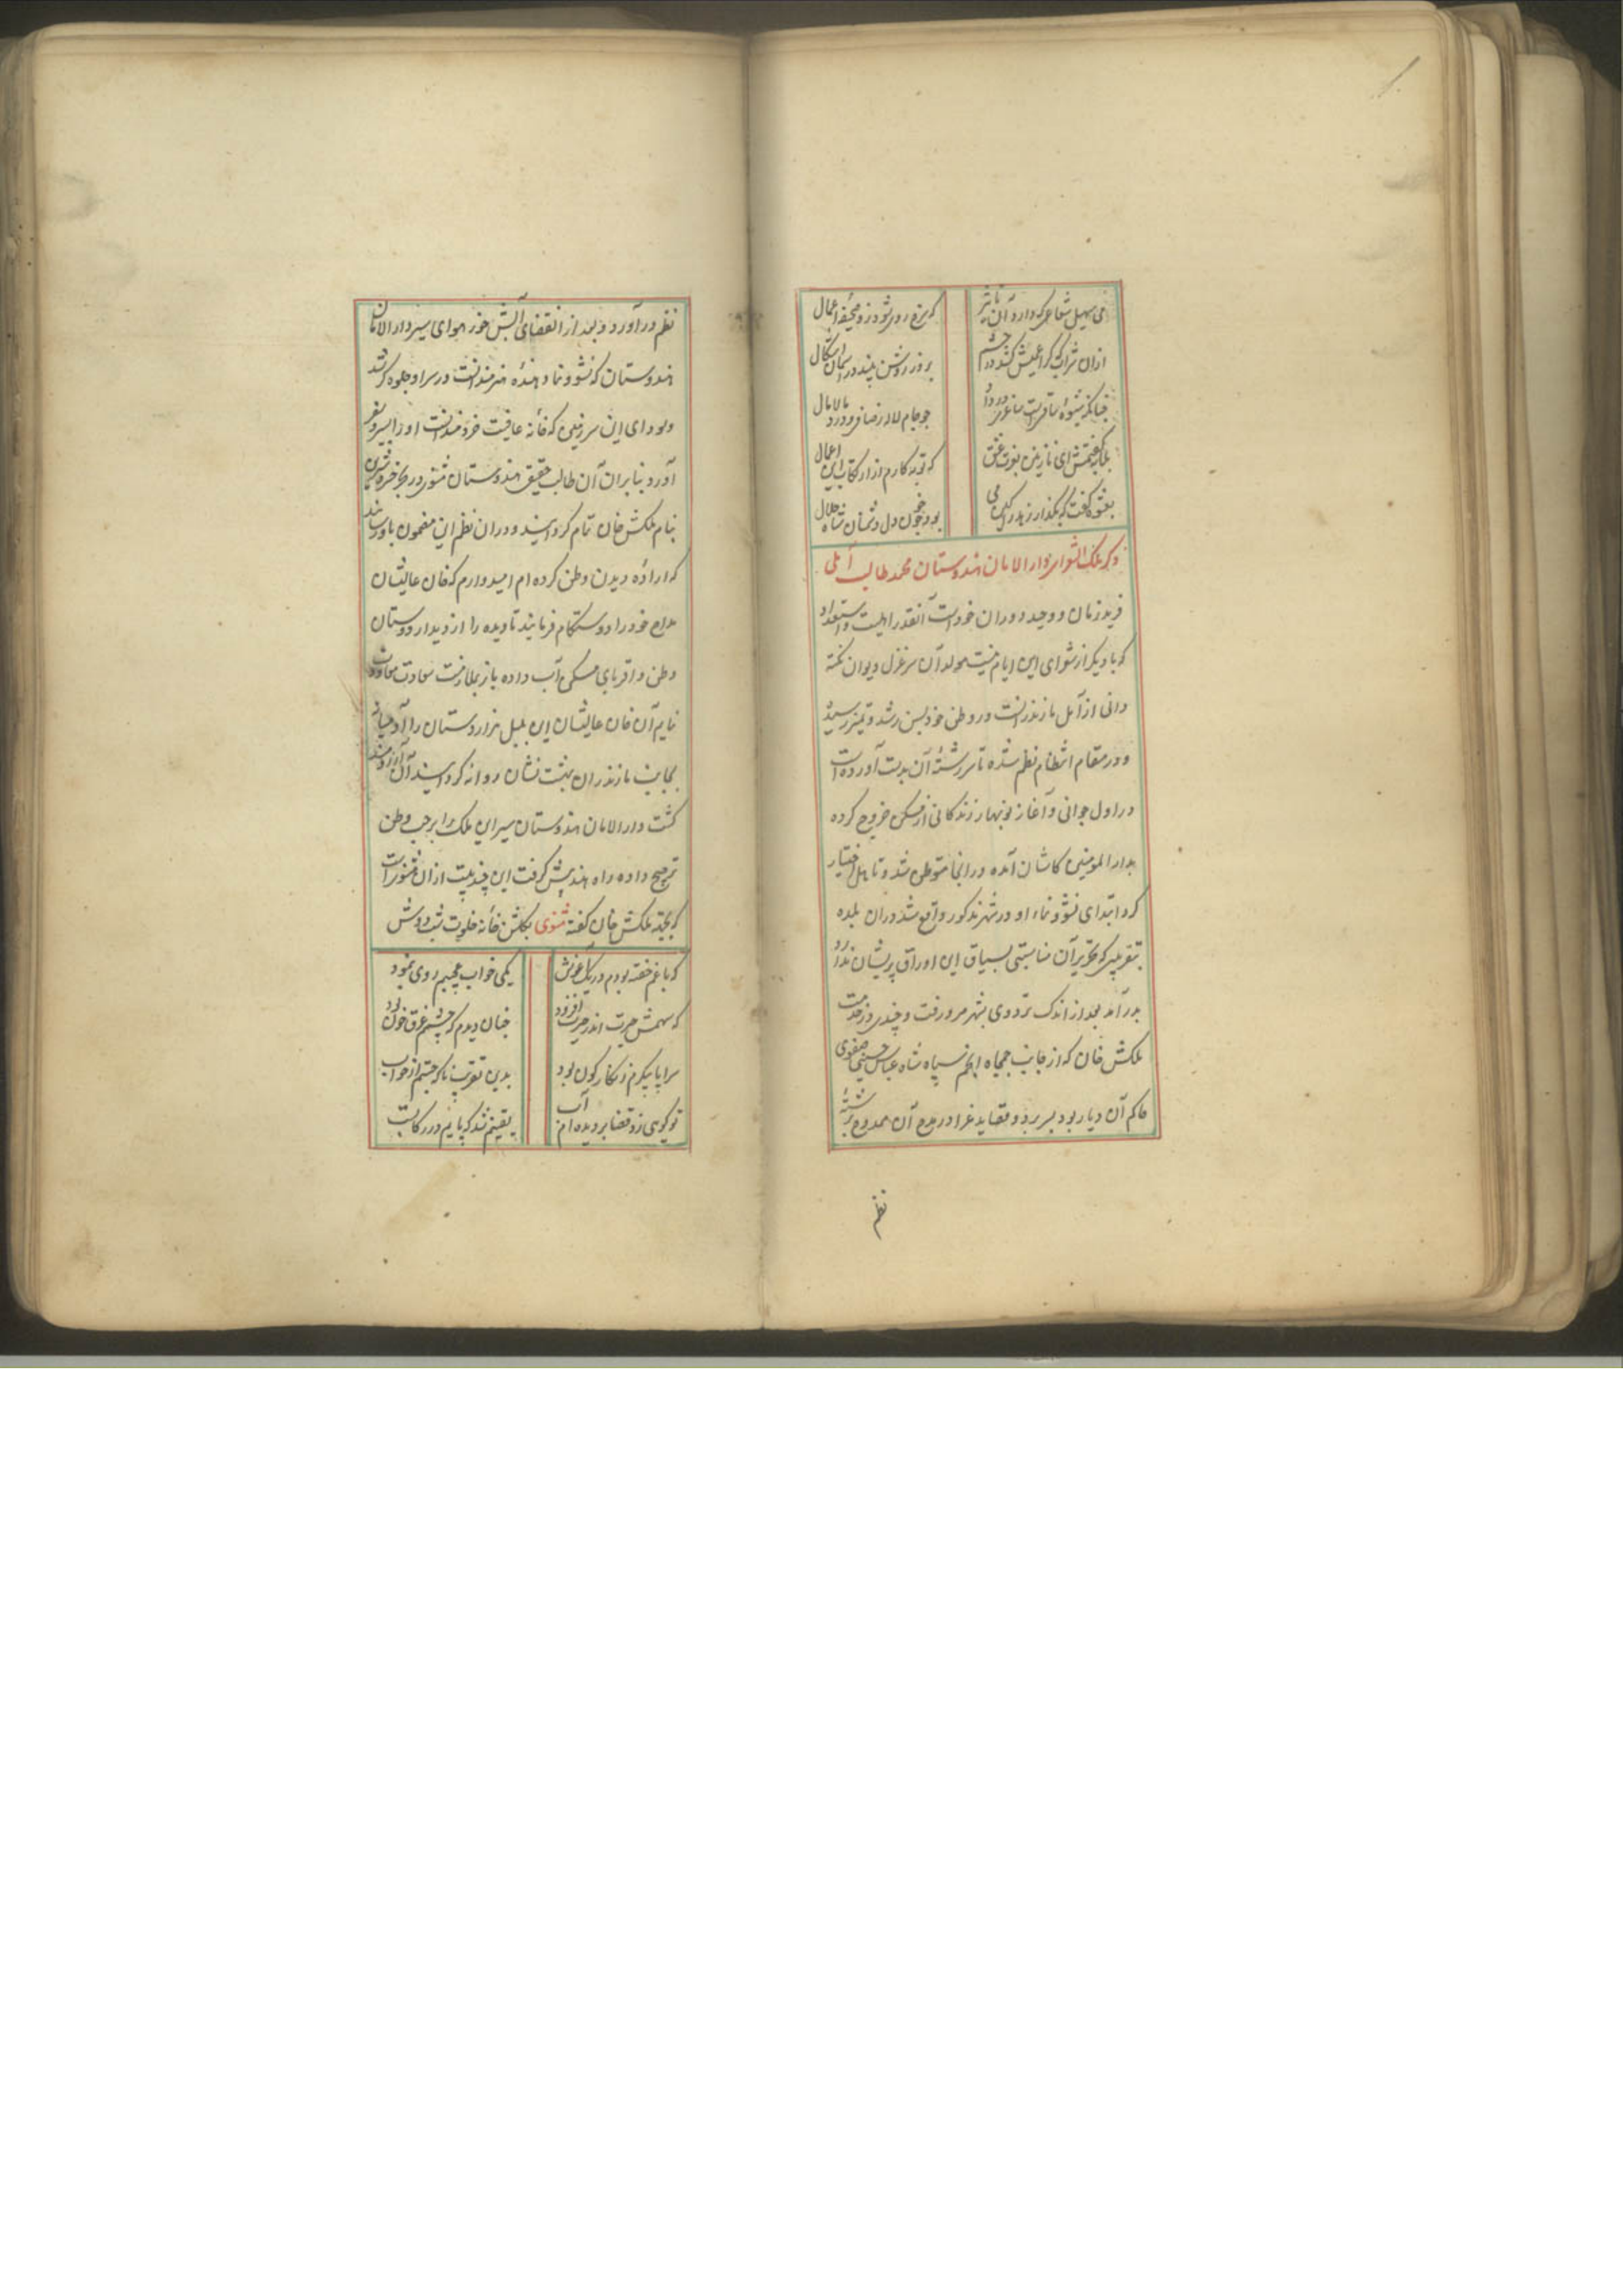 می سهیل شعاعی که دارد آن تاثیر که سرخ روی شود زو صحیفه اعمال
ازان شراب که گر اعمیش کشد در چشم بروز روشن بیند در آسمان اشکال
چنانکه شیوه ساقیست ساغر در دور چو جام لاله ز صاف و درد مالامال
بگفتمش ای نازنین بفتوی عشق که توبه کارم ازار تکاب این اعمال
بعشوه گفت که بگذار زهد می بود چو خون دل دشمنان شاه حلال
ذکر ملک الشعرای دار الامان هندوستان محمد طالب آملی
فرید زمان و وحید دوران خود است آنقدر اهلیت و استعداد
که با دیگر از شعرای این ایام نیست مولد آن سر غزل دیوان نکته
دانی از آمل مازندرانست در وطن خود بسن رشد و تمیز رسیده
و در مقام انتظام نظم شده تا سر رشته آن بدست آورده است
در اول جوانی و آغاز نوبهار زندگانی از مسکن خروج کرده
بدار المومنین کاشان آمده در انجا متوطن شد و تاهل اختیار
کرد ابتدای نشو و نماء او در شهر مذکور واقع شد دران بلده
بتقریبی که تحریر آن مناسبتی بسیاق این اوراق پریشان ندارد
بدر آمد بعد از اندک ترددی بشهر مرو رفت و چندی در خدمت
ملکش خان که از جانب جمجاه انجم سپاه شاه عباس حسینی صفوی
حاکم آن دیار بود بسر برد و قصاید غرا در مدح آن ممدوح برشته
نظم
نظم در آورد و بعد از انقضای آبش خور هوای سیر دار الامان
هندوستان که نشو و نما دهنده هنرمندانست در سر او جلوه گر شد
و سودای این سرزمین که خانه عافیت خردمندانست او را بر سر سفر
آورد بنابران آن طالب حقیقی هندوستان مثنوی در بحر خسرو شیرین
بنام ملکش خان تمام گردانید و دران نظم این مضمون باو رساند
که اراده دیدن وطن کرده ام امیدوارم که خان عالیشان
مداح خود را دوستکام فرمایند تا دیده را از دیدار دوستان
وطن و اقربای مسکن آب داده باز بملازمت سعادت معاودت
نمایم آن خان عالیشان این بلبل هزار دستان را
بجانب مازندران بهشت نشان روانه گردانید آن آرزومند
گشت دار الامان هندوستان سیر این ملک را بر حب وطن
ترجیح داده راه هند پیش گرفت این چند بیت ازان مثنویست
که بجهة ملکش خان گفته مثنوی بگلشن خانه خلوت شب دوش
که با غم خفته بودم در یک آغوش یکی خواب عجیبم روی بنمود
که سهمش حیرت اندر حیرت افزود چنان دیدم که چشمم غرق خون بود
سراپا پیکرم زنگار گون بود بدین تقریب ناگه جستم از خواب
تو گوی زد قضا بر دیده ام آب یقینم شد که پایم در رکابست